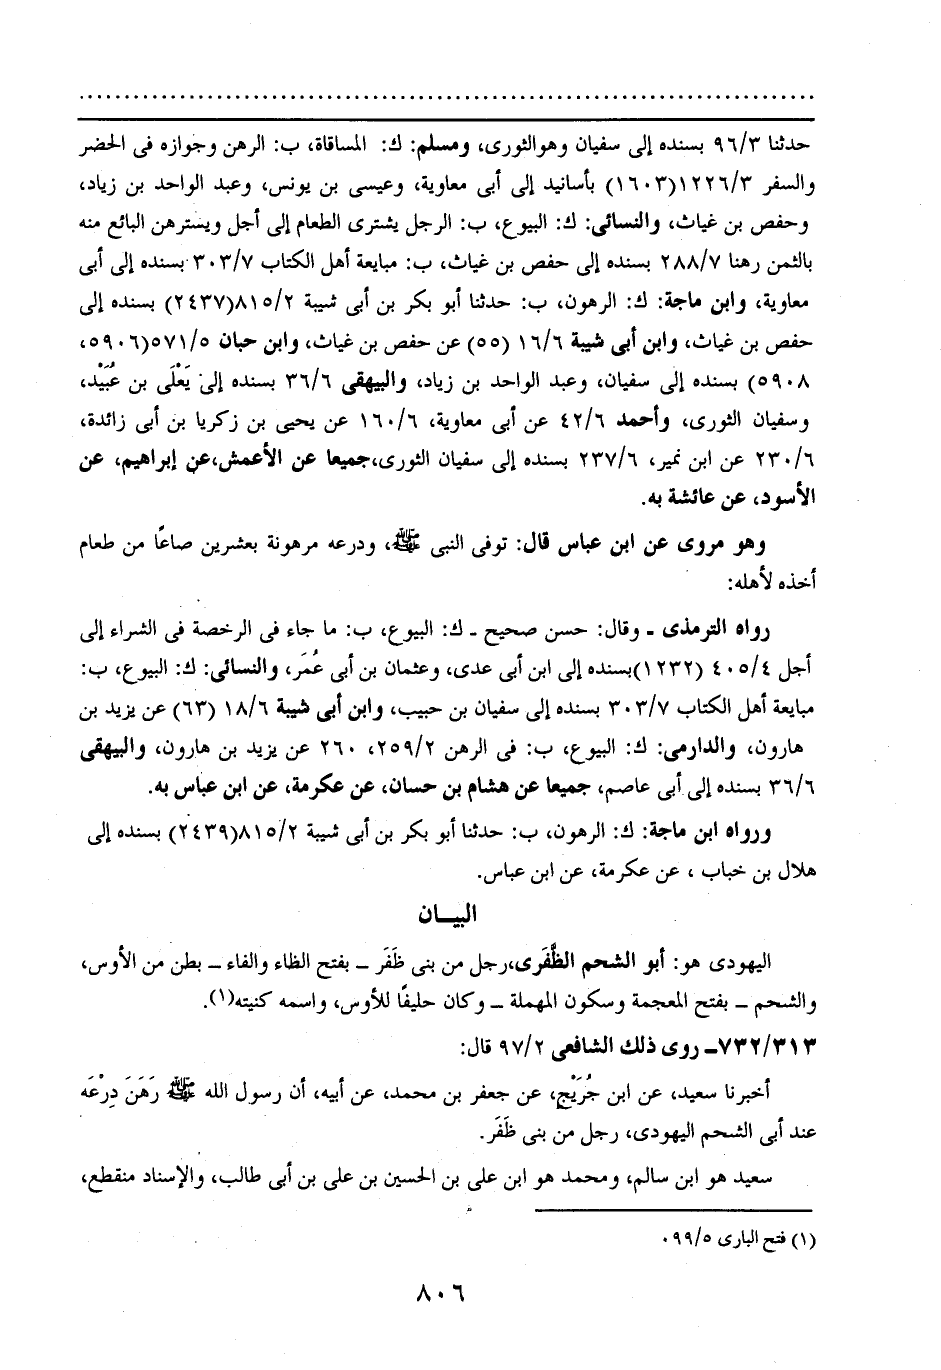 حدثنا ٩٦/٣ بسنده إلى سفيان وهوالثورى، ومسلم: ك: المساقاة، ب: الرهن وجوازه فى الحضر
والسفر ١٢٢٦/٣(١٦٠٣) بأسانيد إلى أبى معاوية، وعيسى بن يونس، وعبد الواحد بن زياد،
وحفص بن غياث، والنسائى: ك: البيوع، ب: الرجل يشترى الطعام إلى أجل ويسترهن البائع منه
بالثمن رهنا ٢٨٨/٧ بسنده إلى حفص بن غياث، ب: مبايعة أهل الكتاب ٣٠٣/٧ بسنده إلى أبى
معاوية، وابن ماجة: ك: الرهون، ب: حدثنا أبو بكر بن أبى شيبة ٨١٥/٢(٢٤٣٧) بسنده إلى
حفص بن غياث، وابن أبى شيبة ١٦/٦ (٥٥) عن حفص بن غياث، وابن حبان ٥٧١/٥(٥٩٠٦،
٥٩٠٨) بسنده إلى سفيان، وعبد الواحد بن زياد، والبيهقى ٣٦/٦ بسنده إلى يَعْلَى بن عُبَيْد،
وسفيان الثورى، وأحمد ٤٢/٦ عن أبى معاوية، ١٦٠/٦ عن يحيى بن زكريا بن أبى زائدة،
٢٣٠/٦ عن ابن نمير، ٢٣٧/٦ بسنده إلى سفيان الثورى،جميعا عن الأعمش،عن إبراهيم، عن
الأسود، عن عائشة به.
وهو مروى عن ابن عباس قال: توفى النبى ﷺ، ودرعه مرهونة بعشرين صاعًا من طعام
أخذه لأهله:
رواه الترمذى ـ وقال: حسن صحيح ـ ك: البيوع، ب: ما جاء فى الرخصة فى الشراء إلى
أجل ٤٠٥/٤ (١٢٣٢)بسنده إلى ابن أبى عدى، وعثمان بن أبى عُمَر، والنسائى: ك: البيوع، ب:
مبايعة أهل الكتاب ٣٠٣/٧ بسنده إلى سفيان بن حبيب، وابن أبى شيبة ١٨/٦ (٦٣) عن يزيد بن
هارون، والدارمى: ك: البيوع، ب: فى الرهن ٢٥٩/٢، ٢٦٠ عن يزيد بن هارون، والبيهقى
٣٦/٦ بسنده إلى أبى عاصم، جميعا عن هشام بن حسان، عن عكرمة، عن ابن عباس به.
ورواه ابن ماجة: ك: الرهون، ب: حدثنا أبو بكر بن أبى شيبة ٨١٥/٢(٢٤٣٩) بسنده إلى
هلال بن خباب ، عن عكرمة، عن ابن عباس.
البيـــان
اليهودى هو: أبو الشحم الظَّفَرى،رجل من بنى ظَفَر ــ بفتح الظاء والفاء ــ بطن من الأوس،
والشحم ــ بفتح المعجمة وسكون المهملة ــ وكان حليفًا للأوس، واسمه كنيته(١).
٧٣٢/٣١٣ــ روى ذلك الشافعى ٩٧/٢ قال:
أخبرنا سعيد، عن ابن جُرَيْج، عن جعفر بن محمد، عن أبيه، أن رسول الله ﷺ رَهَنَ دِرْعَه
عند أبى الشحم اليهودى، رجل من بنى ظَفَر.
سعيد هو ابن سالم، ومحمد هو ابن على بن الحسين بن على بن أبى طالب، والإسناد منقطع،
(١) فتح البارى ٠٩٩/٥
٨٠٦